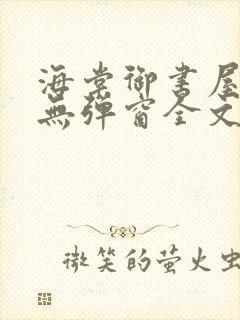 海棠御書屋
無彈窗全文
微笑的萤火虫